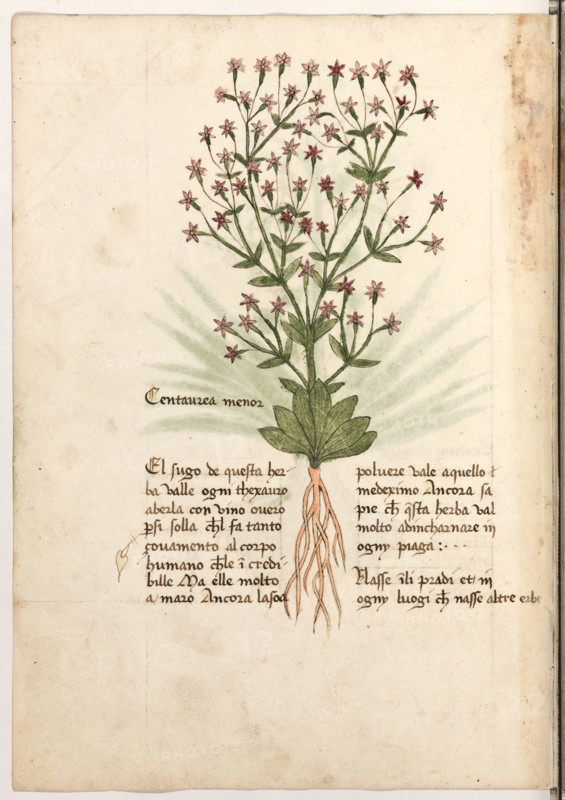 Centaurea menor
El sugo de questa her-
ba valle ogni thexauro
aberla con vino overo
p̱si solla cħl fa tanto
çovamento al corpo
humano cħle ĩ credi-
bille Ma elle molto
a maro Ancora la soa
polvere vale aquello
medeximo Ancora sa
pie cħ q̃sta herba val
molto adincharnare in
ogny piaga :· - - -
Nasse ĩ li pradi et in
ogny luogi cħ nasse altre erbe